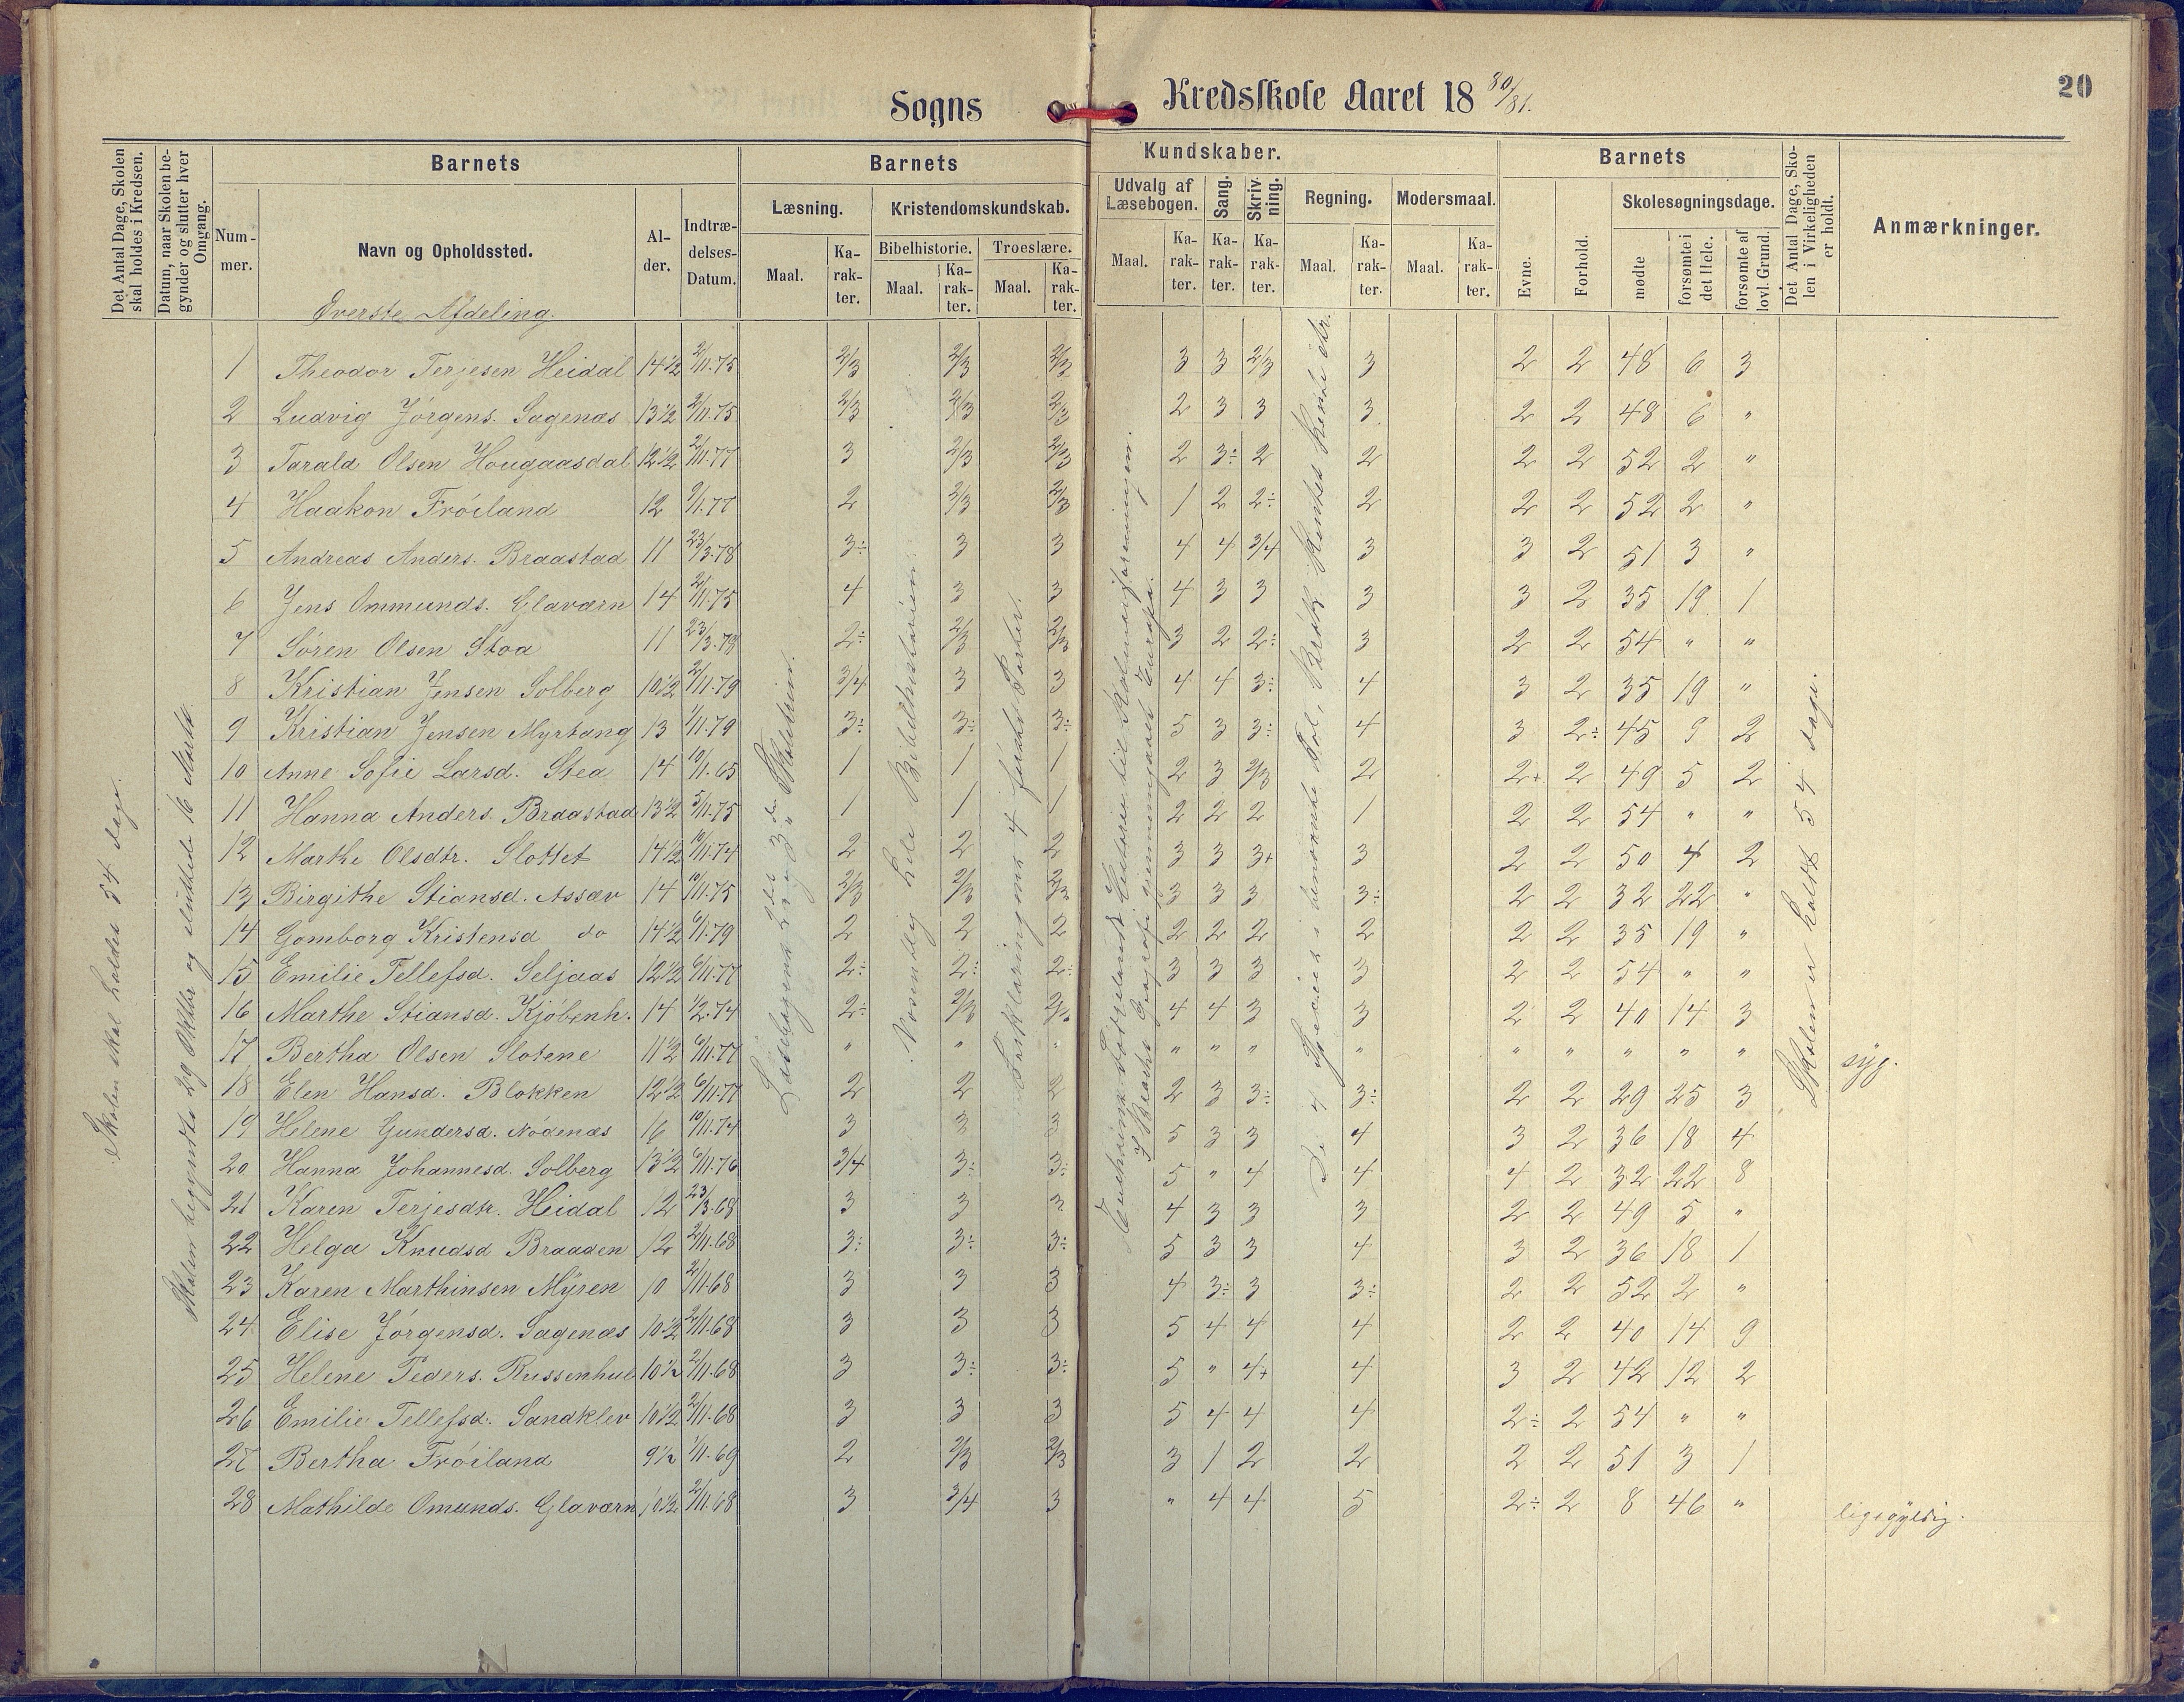 Sogns Kredsskole Aaret 18 80/81.
20
Det Antal Dage, Skolen skal holdes i Kredsen.
Datum, naar Skolen begynder og slutter hver Omgang.
Barnets
Nummer.
Navn og Opholdssted.
Alder.
Indtrædelses-Datum.
Barnets Kundskaber.
Læsning.
Maal.
Karakter.
Kristendomskundskab.
Bibelhistorie.
Maal.
Karakter.
Troeslære.
Maal.
Karakter.
Udvalg af Læsebogen.
Maal.
Karakter.
Sang.
Karakter.
Skrivning.
Karakter.
Regning.
Maal.
Karakter.
Modersmaal.
Maal.
Karakter.
Barnets
Evne.
Forhold.
Skolesøgningsdage.
mødte
forsømte i det Hele.
forsømte af lovl. Grund.
Det Antal Dage, Skolen i Virkeligheden er holdt.
Anmærkninger.
Øverste Afdeling.
Skolen skal holdes 54 dage.
Skolen begyndte 29 Oktbr og sluttede 16 Marts.
Skolen er holdt 54 dage.
1 Theodor Terjesen Heidal 14½ 2/11.75 2/3 2/3 2/3 3 3 2/3 3 2 2 48 6 3
2 Ludvig Jørgens. Sagenæs 13½ 2/11.75 2/3 2/3 2/3 2 3 3 3 2 2 48 6 "
3 Tarald Olsen Hougaasdal 12½ 2/11.77 3 2/3 2/3 2 3÷ 2 2 2 2 52 2 "
4 Haakon Frøiland 12 2/3 2/3 1 2 2÷ 2 2 2 52 2 "
5 Andreas Anders. Braastad 11 23/3.78 3÷ 3 3 4 4 3/4 3 3 2 51 3 "
6 Jens Ommunds. Glaværn 14 2/11.75 4 3 3 4 3 3 3 3 2 35 19 1
7 Søren Olsen Stoa 11 23/3.78 2÷ 2/3 2/3 3 2 2÷ 3 2 2 54 " "
8 Kristian Jensen Solberg 10½ 2/11.79 3/4 3 3 4 4 3÷ 4 3 2 35 19 "
9 Kristian Jensen Myrtang 13 1/11.79 3÷ 3÷ 3÷ 5 3 3÷ 4 3 2÷ 45 9 2
10 Anne Sofie Larsd. Stea 14 10/11.65 1 1 1 2 3 2/3 2 2+ 2 49 5 2
11 Hanna Anders. Braastad 13½ 5/11.75 1 1 1 2 2 2 1 2 2 54 " "
12 Marthe Olsdtr. Slottet 14½ 10/11.74 2 2 2 3 3 3+ 3 2 2 50 4 2
13 Birgithe Stiansd. Assæv 14 10/11.75 2/3 2/3 2/3 3 3 3 3÷ 2 2 32 22 "
14 Gomborg Kristensd do 14½ 6/11.79 2 2 2 2 2 2 2 2 2 35 19 "
15 Emilie Tellefsd. Seljaas 12½ 6/11.77 2÷ 2÷ 2÷ 3 3 3 3 2 2 54 " "
16 Marthe Stiansd. Kjøbenh. 14 1/2.74 2÷ 2/3 4 4 3 3 2 2 40 14 3
17 Bertha Olsen Slotene 11½ 6/11.77 " " " " " " " " " " " " syg.
18 Elen Hansd. Blokken 12½ 6/11.77 2 2 2 2 3 3÷ 3÷ 2 2 29 25 3
19 Helene Gundersd. Nødenæs 16 10/11.74 3 3 3 5 3 3 4 3 2 36 18 4
20 Hanna Johannesd. Solberg 13½ 6/11.76 3/4 3÷ 3÷ 5 " 4 4 4 2 32 22 8
21 Karen Terjesdtr. Heidal 12 23/3.68 3 3 3 4 3 3 3 2 2 49 5 "
22 Helga Knudsd Braaden 12 2/11.68 3÷ 3÷ 3÷ 5 3 3 4 3 2 36 18 1
23 Karen Marthinsen Myren 10 2/11.68 3 3 3 4 3÷ 3 3÷ 2 2 52 2 "
24 Elise Jørgensd. Sagenæs 10½ 2/11.68 3 3 3 5 4 4 4 2 2 40 14 9
25 Helene Peders. Russenhul 10½ 2/11.68 3 3÷ 3÷ 5 " 4+ 4 3 2 42 12 2
26 Emilie Tellefsd. Sandklev 10½ 2/11.68 3 3 3 5 4 4 4 2÷ 2 54 " "
27 Bertha Frøiland 9½ 1/11.69 2 2/3 2/3 3 1 2 2 2 2 51 3 1
28 Mathilde Omunds. Glaværn 10½ 2/11.68 3 3/4 3 " 4 4 5 2÷ 2 8 46 " ligegyldig.
Læsebogens 2det og 3die Skoletrin.
Hele Bibelhistorien
Forklaringens 4 første Parter.
Fædrelandets Historie til Kalmarforeningen.
Geografi gjennemgaaet Europa.
De 4 Species i benævnte Tal, Brøk